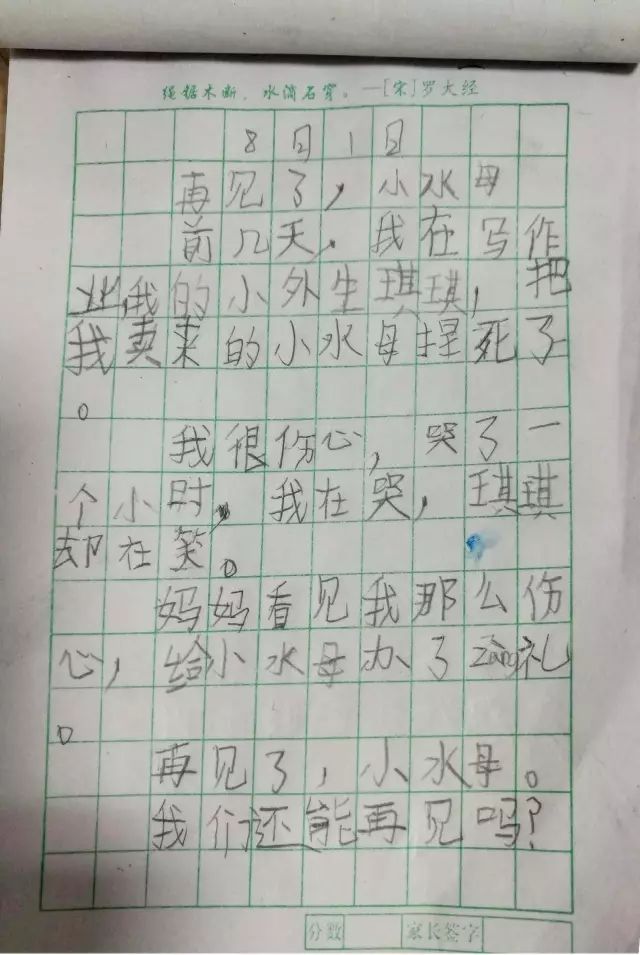 绳锯木断，水滴石穿。—[宋]罗大经
8月1日
再见了，小水母
前几天，我在写作
业，我的小外生琪琪，把
我卖来的小水母捏死了
。
我很伤心，哭了一
个小时，我在哭，琪琪
却在笑。
妈妈看见我那么伤
心，给小水母办了zàng礼
。
再见了，小水母。
我们还能再见吗？
分数 家长签字